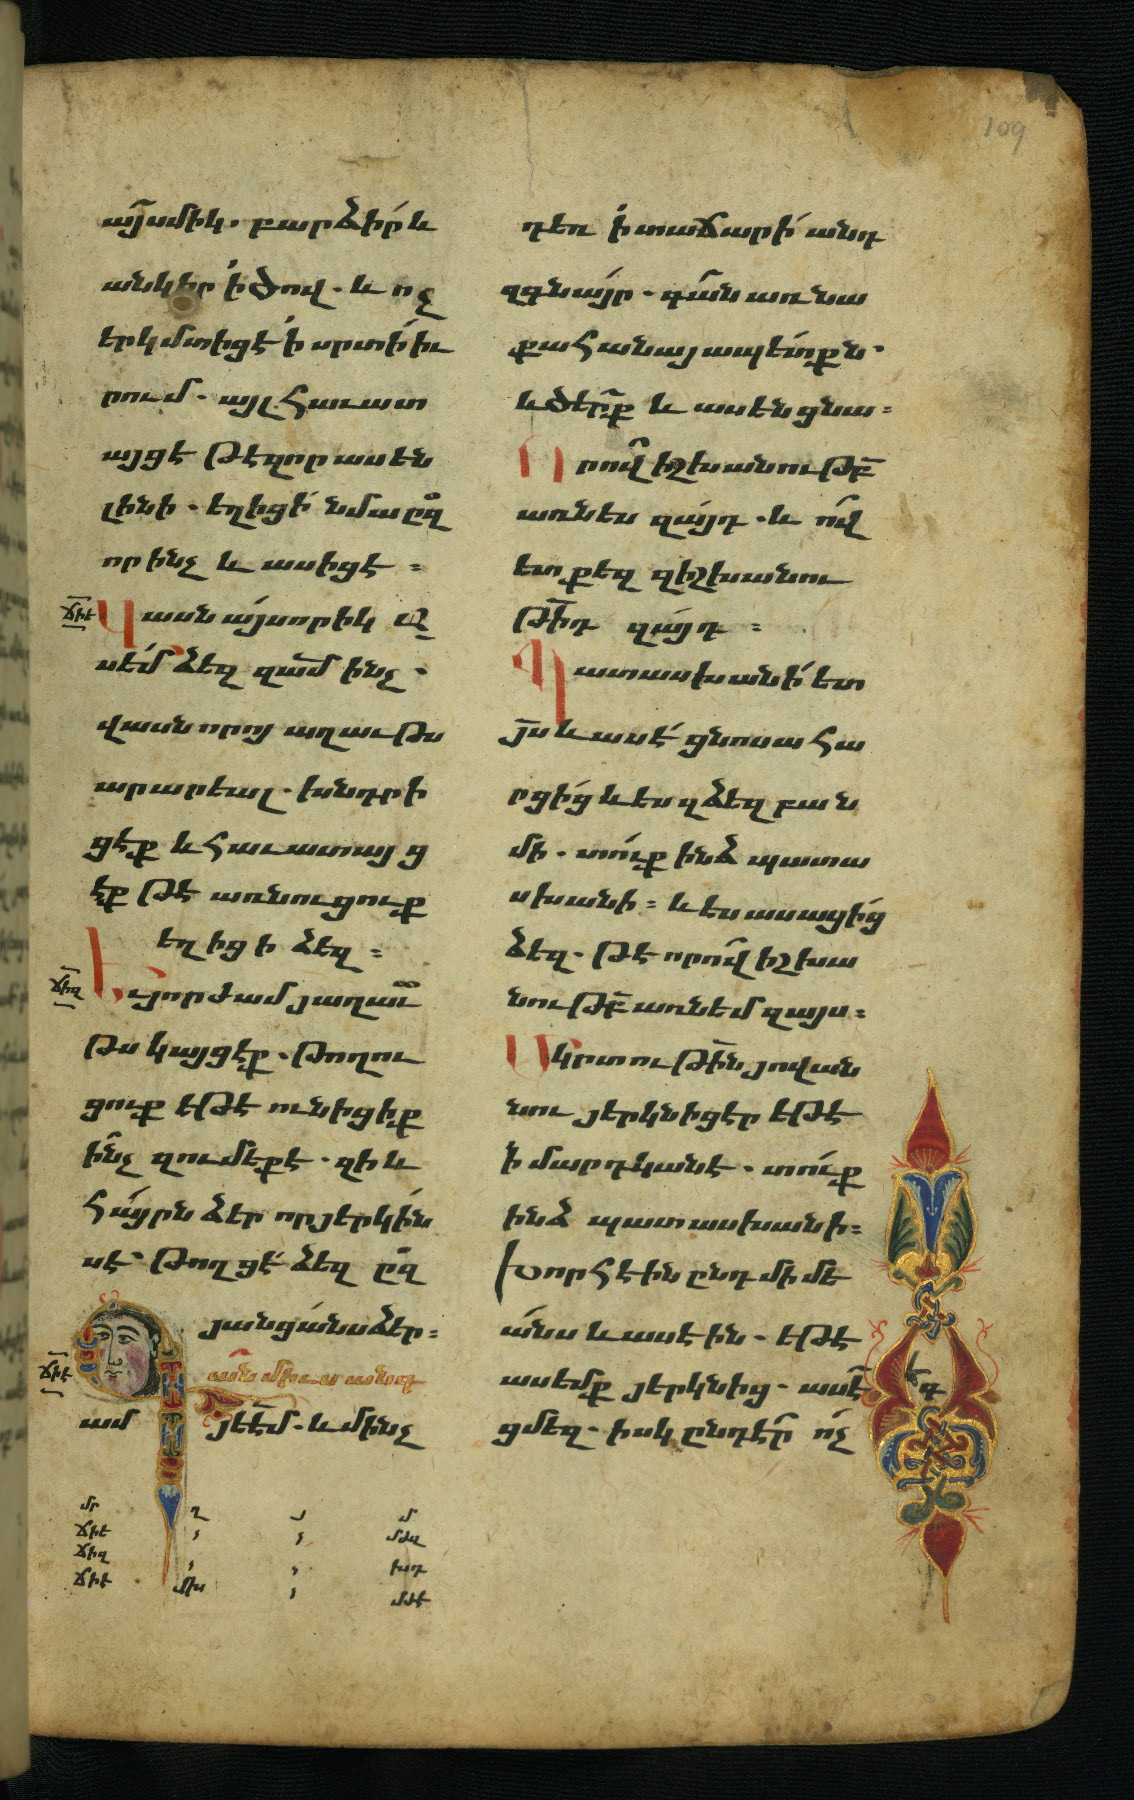 109
այսմիկ. բարձիր և
անկիր ՛ի ծով. և ոչ
երկմտիցէ ՛ի սրտի իւ
րում. այլ հաւատ
այցէ թէ զոր ասէն
լինի. եղիցի նմա ըզ
որ ինչ և ասիցէ։
ՃԻԵ Վասն այսորիկ ա
սեմ ձեզ զամ ինչ.
վասն որոյ աղաւթս
արարեալ. խնդրի
ցէք և հաւատայ ց
էք թէ առնուցուք
եղ իցի ձեզ։
ՃԻԶ Եւ յորժամ յաղաւ
թս կայցէք. թողու
ցուք եթէ ունիցիք
ինչ զումեքէ. զի և
հայրն ձեր որ յերկին
ս է՝ թողցէ ձեզ ըզ
յանցանս ձեր։
ՃԻԷ Գան միւս անգ
ամ յեէմ. և մինչ
դեռ ՛ի տաճարի անդ
զգնայր. գան առ նա
քահանայապետքն.
և ծերք և ասեն ցնա։
Որով իշխանութբ
առնես զայդ. և ով
ետ քեզ զիշխանու
թիդ զայդ։
Պատասխանի ետ
յս և ասէ ցնոսա հա
րցից և ես զձեզ բան
մի. տուք ինձ պատա
սխանի։ և ես ասացից
ձեզ. թէ որով իշխա
նութբ առնեմ զայս։
Մկրտութին յովան
նու յերկնից էր եթէ
ի մարդկանէ. տուք
ինձ պատասխանի։
Խորհէին ընդ միմե
անս և ասէին. եթէ
ասեմք յերկնից. ասէ
ցմեզ. իսկ ընդէր ոչ
ԿԳ